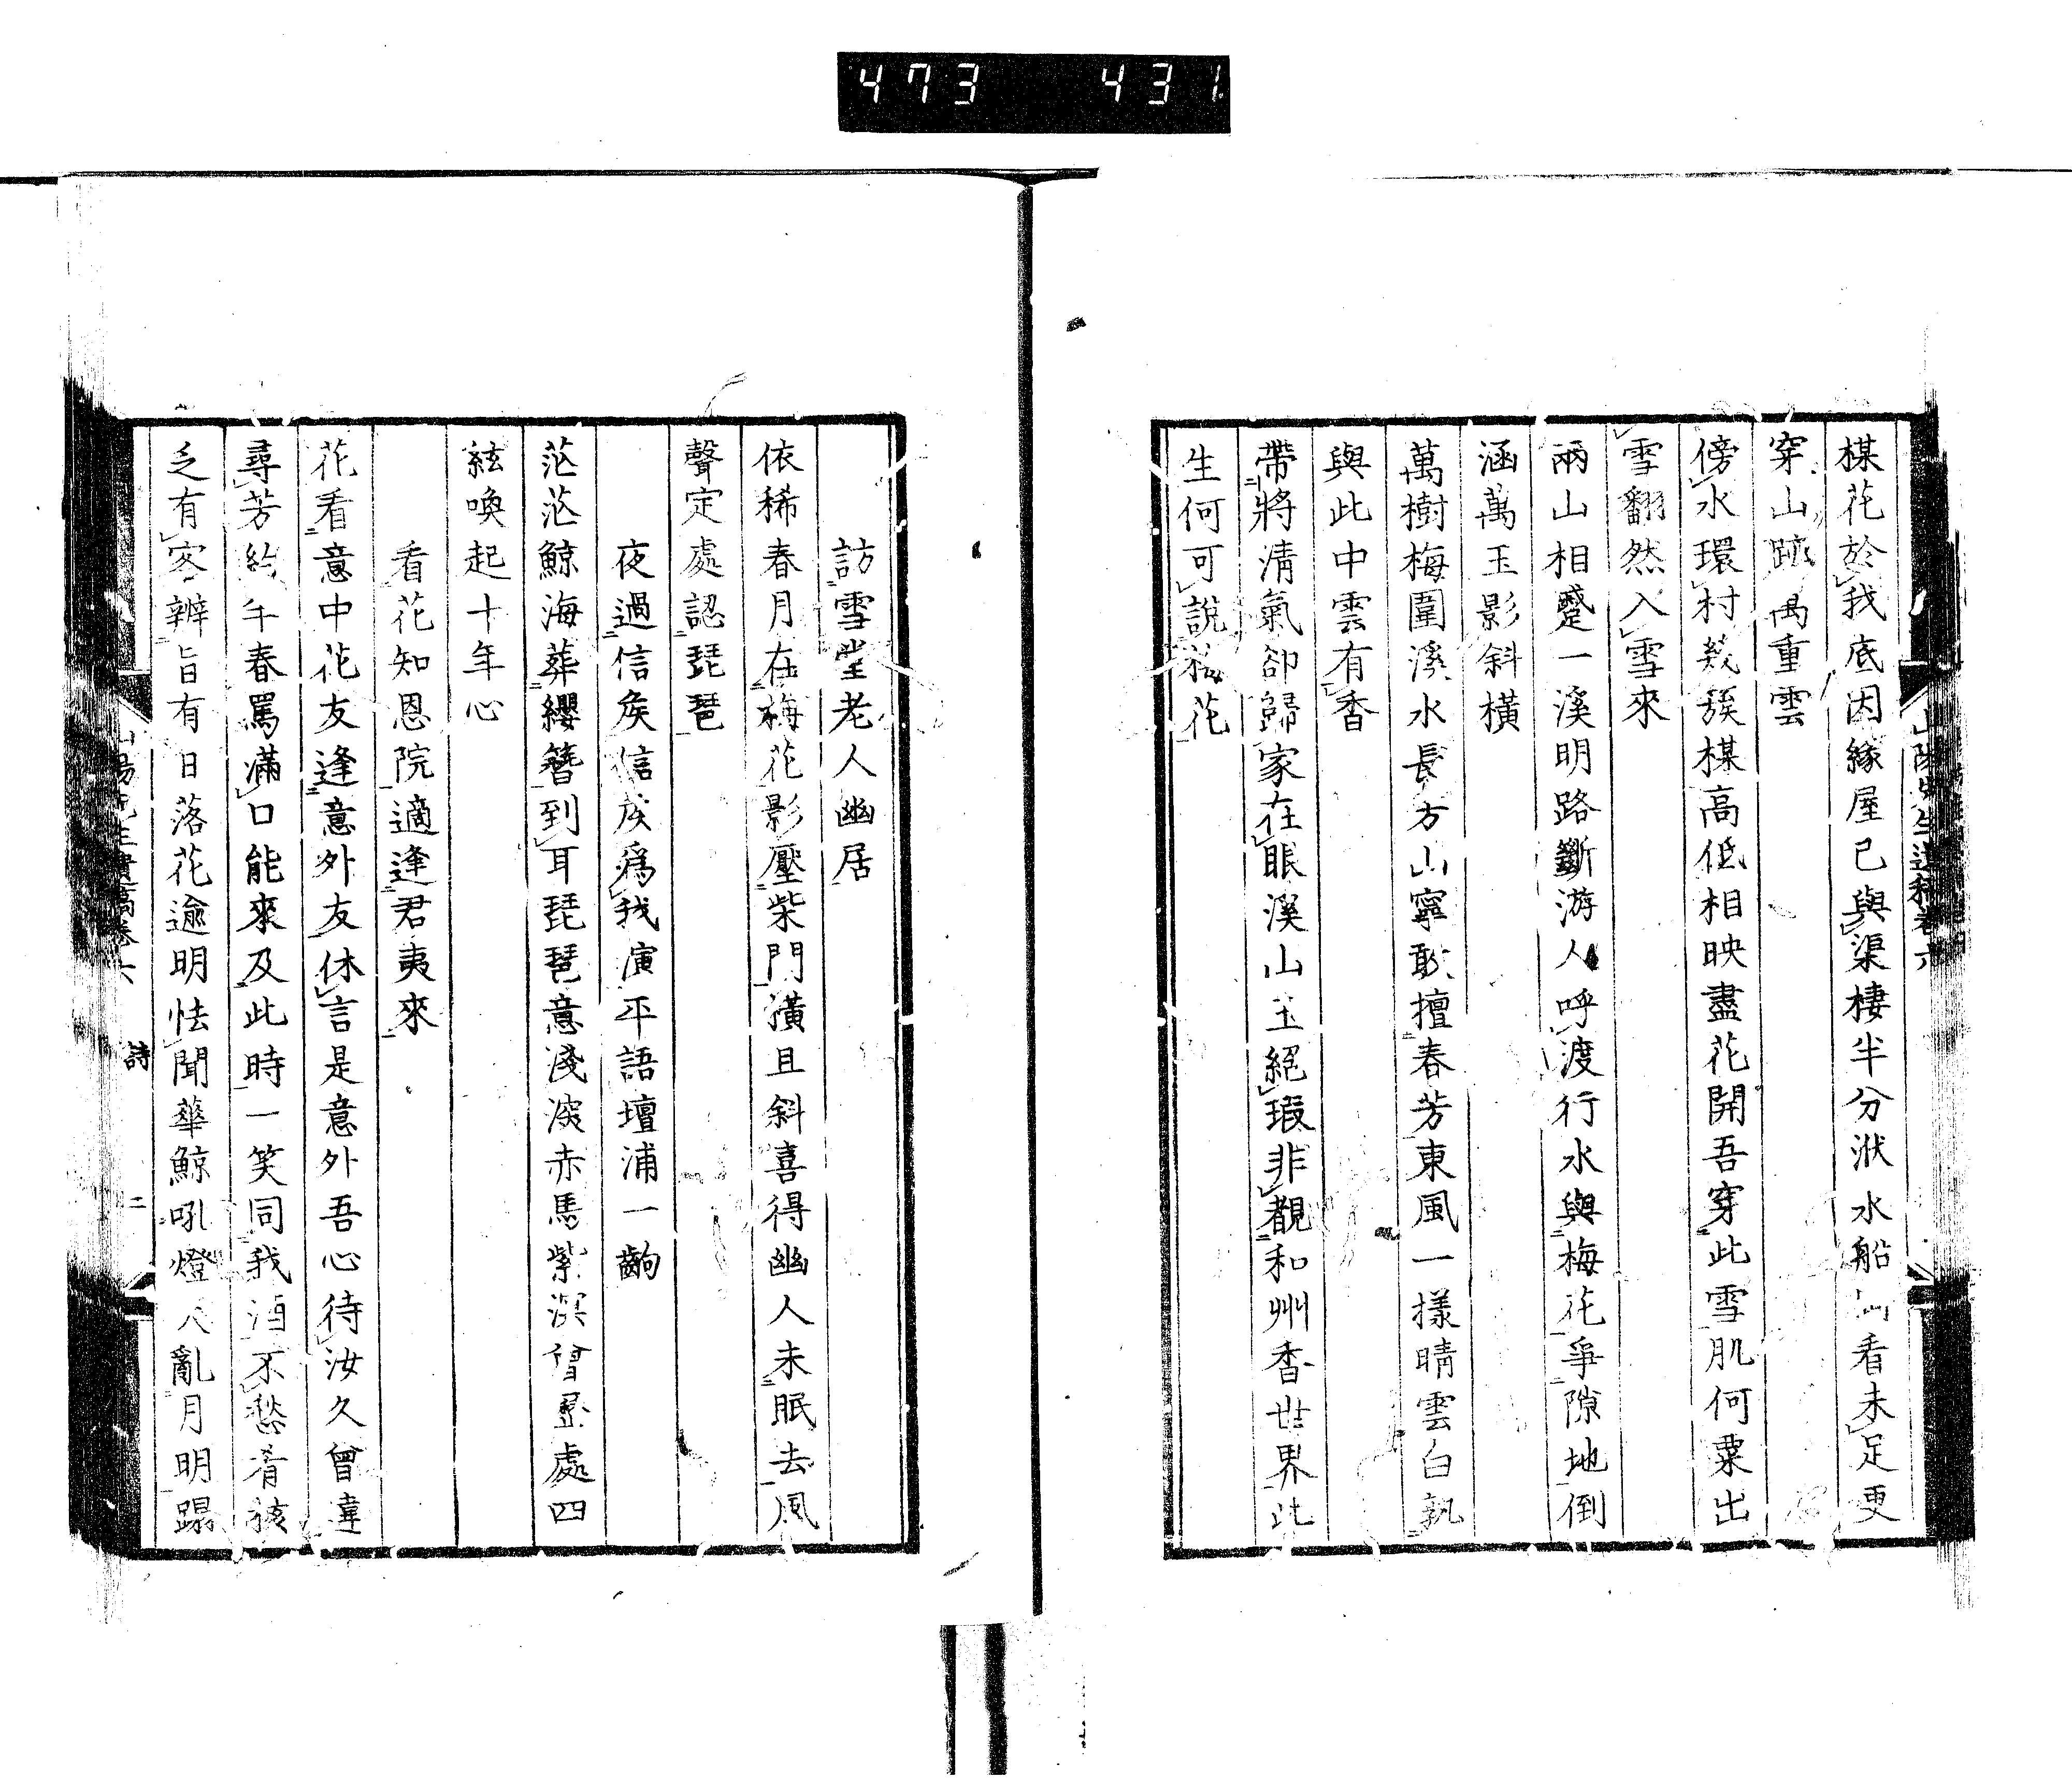 473 431
楳花於我底因緣屋已與渠棲半分洑水船山看未足更
穿山跡萬重雲
傍水環村幾簇楳高低相映盡花開吾穿此雪肌何粟出
雪翻然入雪來
兩山相蹙一溪明路斷游人呼渡行水與梅花爭隙地倒
涵萬玉影斜橫
萬樹梅圍溪水長方山寧敢擅春芳東風一樣晴雲白孰
與此中雲有香
帶將淸氣卻歸家在眼溪山玉絕瑕非覩和州香世界此
生何可說梅花
訪雪堂老人幽居
依稀春月在梅花影壓柴門橫且斜喜得幽人未眠去風
聲定處認琵琶
夜過信矦信矦爲我演平語壇浦一齣
茫茫鯨海葬纓簪到耳琵琶意淺深赤馬紫溟曾歷處四
絃喚起十年心
看花知恩院適逢君夷來
花看意中花友逢意外友休言是意外吾心待汝久曾違
尋芳約千春罵滿口能來及此時一笑同我酒不愁肴核
乏有客辨旨有日落花逾明怯聞華鯨吼燈火亂月明踢
山陽先生遺稿卷六 詩 二